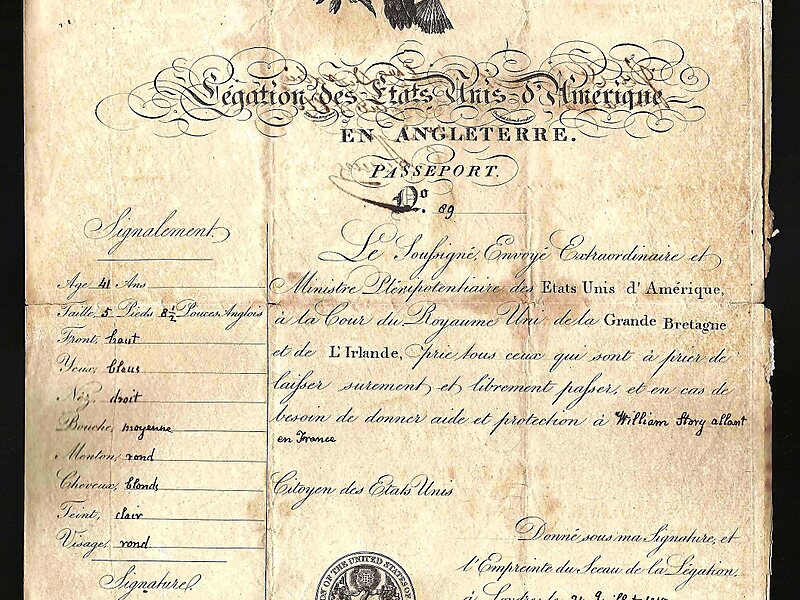 Légation des Etats Unis d'Amérique
EN ANGLETERRE.
PASSEPORT.
No. 89
Signalement
Age 41 Ans
Taille, 5 Pieds 8½ Pouces Anglois
Front, haut
Yeux, bleus
Néz, droit
Bouche, moyenne
Menton, rond
Cheveux, blonds
Teint, clair
Visage, rond
Signature
Le Soussigné, Envoyé Extraordinaire et
Ministre Plénipotentiaire des Etats Unis d'Amérique,
à la Cour du Royaume Uni de la Grande Bretagne
et de L'Irlande, prie tous ceux qui sont à prier de
laisser surement et librement passer, et en cas de
besoin de donner aide et protection à William Story allant
en France
Citoyen des Etats Unis
Donné sous ma Signature, et
l'Empreinte du Sceau de la Légation,
à Londres le
OF THE UNITED STATES OF